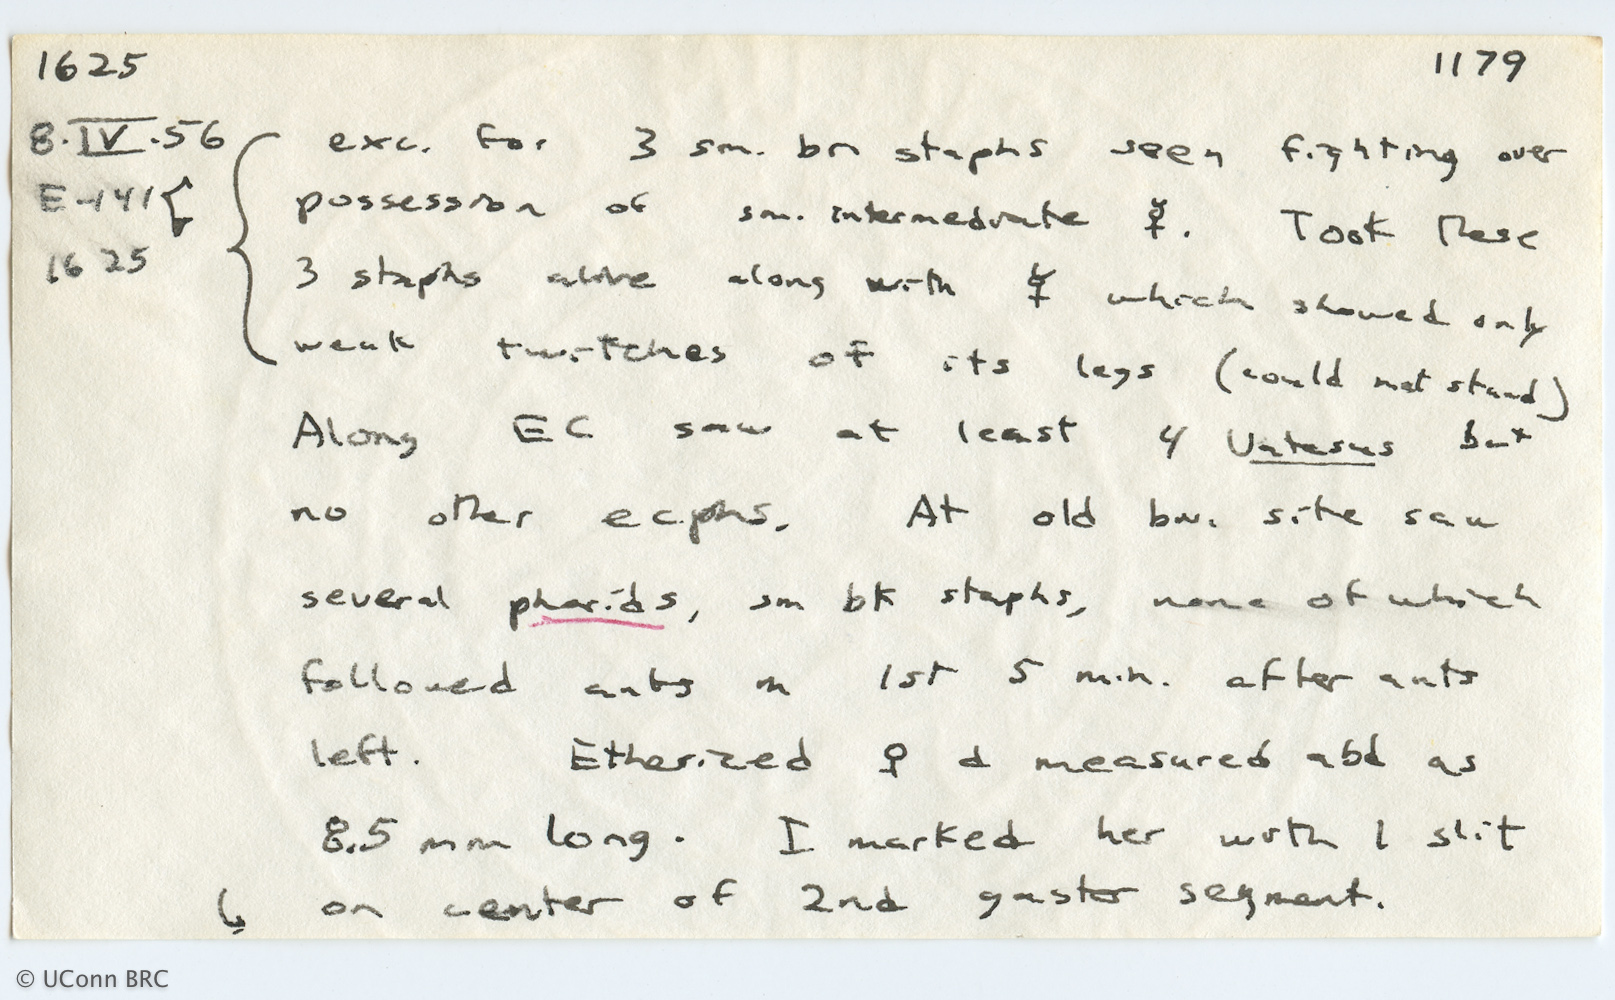 1625 1179
8.IV.56 exc. for 3 sm. bn staphs seen fighting over
E-141 possession of sm. intermediate ☿. Took these
1625 3 staphs alive along with ☿ which showed only
weak twitches of its legs (could not stand)
Along EC saw at least 4 Vatesus but
no other ecphs. At old biv. site saw
several phorids, sm bk staphs, none of which
followed ants in 1st 5 min. after ants
left. Etherized ♀ & measured abd as
8.5 mm long. I marked her with 1 slit
on center of 2nd gaster segment.
© UConn BRC